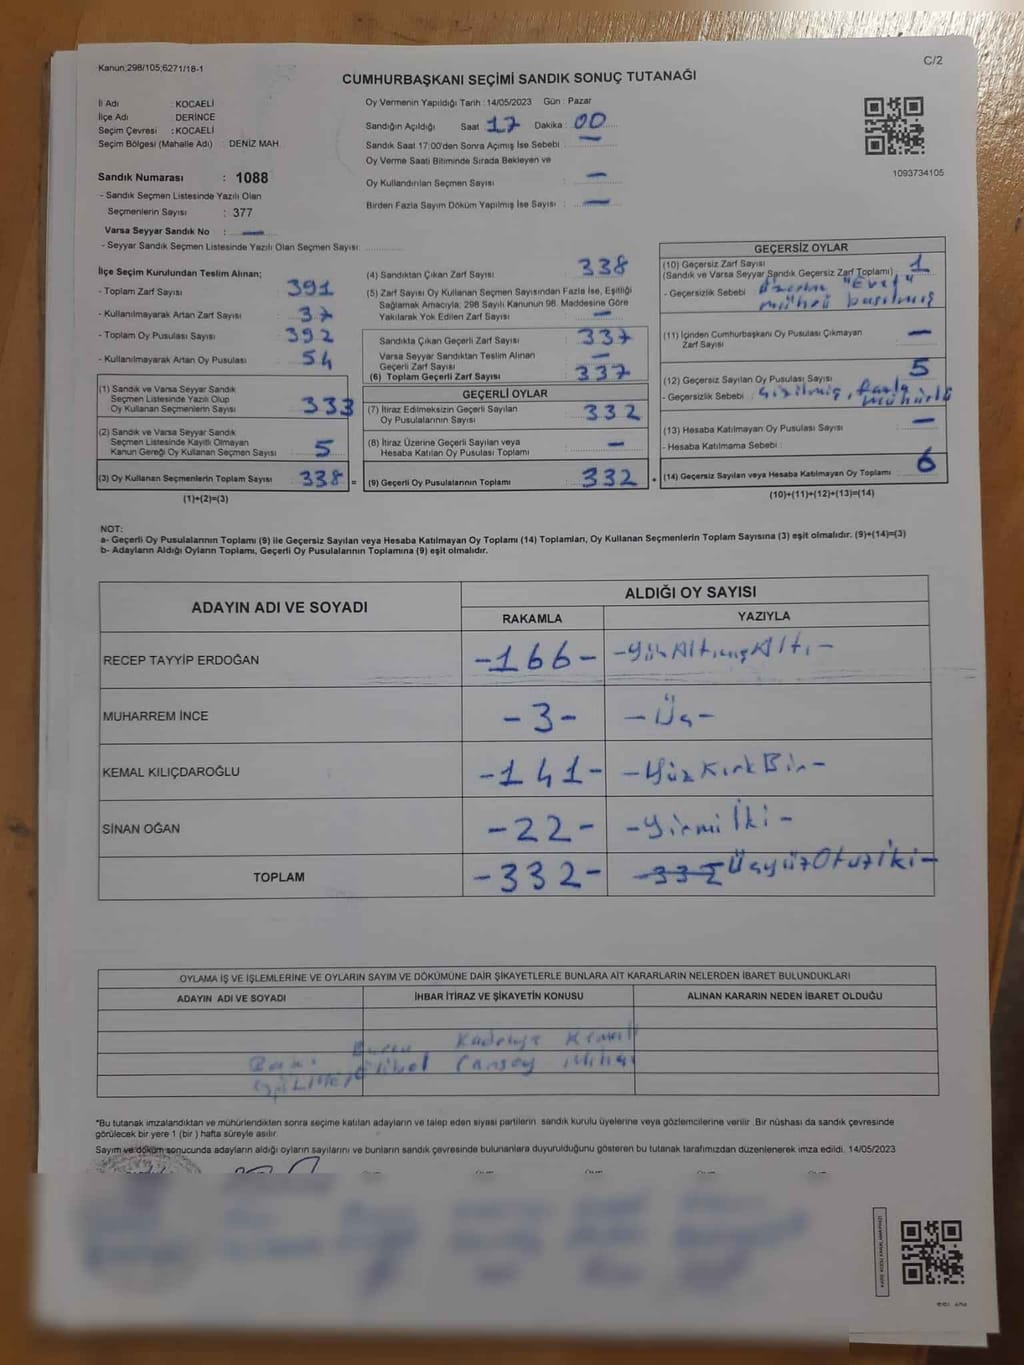 Kanun;298/105;6271/18-1
C/2
CUMHURBAŞKANI SEÇİMİ SANDIK SONUÇ TUTANAĞI
İl Adı : KOCAELİ
İlçe Adı : DERİNCE
Seçim Çevresi : KOCAELİ
Seçim Bölgesi (Mahalle Adı) : DENİZ MAH.
Sandık Numarası : 1088
- Sandık Seçmen Listesinde Yazılı Olan
Seçmenlerin Sayısı : 377
Varsa Seyyar Sandık No : —
- Seyyar Sandık Seçmen Listesinde Yazılı Olan Seçmen Sayısı:
Oy Vermenin Yapıldığı Tarih : 14/05/2023 Gün : Pazar
Sandığın Açıldığı Saat 17 Dakika : 00
Sandık Saat 17:00'den Sonra Açımış İse Sebebi : —
Oy Verme Saati Bitiminde Sırada Bekleyen ve
Oy Kullandırılan Seçmen Sayısı : —
Birden Fazla Sayım Döküm Yapılmış İse Sayısı : —
1093734105
İlçe Seçim Kurulundan Teslim Alınan;
- Toplam Zarf Sayısı : 391
- Kullanılmayarak Artan Zarf Sayısı : 37
- Toplam Oy Pusulası Sayısı : 392
- Kullanılmayarak Artan Oy Pusulası : 54
(1) Sandık ve Varsa Seyyar Sandık
Seçmen Listesinde Yazılı Olup
Oy Kullanan Seçmenlerin Sayısı : 333
(2) Sandık ve Varsa Seyyar Sandık
Seçmen Listesinde Kayıtlı Olmayan
Kanun Gereği Oy Kullanan Seçmen Sayısı : 5
(3) Oy Kullanan Seçmenlerin Toplam Sayısı : 338 =
(1)+(2)=(3)
(4) Sandıktan Çıkan Zarf Sayısı : 338
(5) Zarf Sayısı Oy Kullanan Seçmen Sayısından Fazla İse, Eşitliği
Sağlamak Amacıyla; 298 Sayılı Kanunun 98. Maddesine Göre
Yakılarak Yok Edilen Zarf Sayısı : —
Sandıkta Çıkan Geçerli Zarf Sayısı : 337
Varsa Seyyar Sandıktan Teslim Alınan
Geçerli Zarf Sayısı : —
(6) Toplam Geçerli Zarf Sayısı : 337
GEÇERLİ OYLAR
(7) İtiraz Edilmeksizin Geçerli Sayılan
Oy Pusulalarının Sayısı : 332
(8) İtiraz Üzerine Geçerli Sayılan veya
Hesaba Katılan Oy Pusulası Toplamı : —
(9) Geçerli Oy Pusulalarının Toplamı : 332
GEÇERSİZ OYLAR
(10) Geçersiz Zarf Sayısı
(Sandık ve Varsa Seyyar Sandık Geçersiz Zarf Toplamı) : 1
- Geçersizlik Sebebi : Üzerine "Evet"
mührü basılmış
(11) İçinden Cumhurbaşkanı Oy Pusulası Çıkmayan
Zarf Sayısı : —
(12) Geçersiz Sayılan Oy Pusulası Sayısı : 5
- Geçersizlik Sebebi : Çizilmiş, fazla
mühürlü
(13) Hesaba Katılmayan Oy Pusulası Sayısı : —
- Hesaba Katılmama Sebebi :
(14) Geçersiz Sayılan veya Hesaba Katılmayan Oy Toplamı : 6
(10)+(11)+(12)+(13)=(14)
NOT:
a- Geçerli Oy Pusulalarının Toplamı (9) ile Geçersiz Sayılan veya Hesaba Katılmayan Oy Toplamı (14) Toplamları, Oy Kullanan Seçmenlerin Toplam Sayısına (3) eşit olmalıdır. (9)+(14)=(3)
b- Adayların Aldığı Oyların Toplamı, Geçerli Oy Pusulalarının Toplamına (9) eşit olmalıdır.
ADAYIN ADI VE SOYADI
ALDIĞI OY SAYISI
RAKAMLA YAZIYLA
RECEP TAYYİP ERDOĞAN -166- -YüzAltmışAltı-
MUHARREM İNCE -3- -Üç-
KEMAL KILIÇDAROĞLU -141- -YüzKırkBir-
SİNAN OĞAN -22- -Yirmiİki-
TOPLAM -332- -332 ÜçyüzOtuzİki-
OYLAMA İŞ VE İŞLEMLERİNE VE OYLARIN SAYIM VE DÖKÜMÜNE DAİR ŞİKAYETLERLE BUNLARA AİT KARARLARIN NELERDEN İBARET BULUNDUKLARI
ADAYIN ADI VE SOYADI İHBAR İTİRAZ VE ŞİKAYETİN KONUSU ALINAN KARARIN NEDEN İBARET OLDUĞU
*Bu tutanak imzalandıktan ve mühürlendikten sonra seçime katılan adayların ve talep eden siyasi partilerin sandık kurulu üyelerine veya gözlemcilerine verilir. Bir nüshası da sandık çevresinde
görülecek bir yere 1 (bir ) hafta süreyle asılır.
Sayım ve döküm sonucunda adayların aldığı oyların sayılarını ve bunların sandık çevresinde bulunanlara duyurulduğunu gösteren bu tutanak tarafımızdan düzenlenerek imza edildi. 14/05/2023